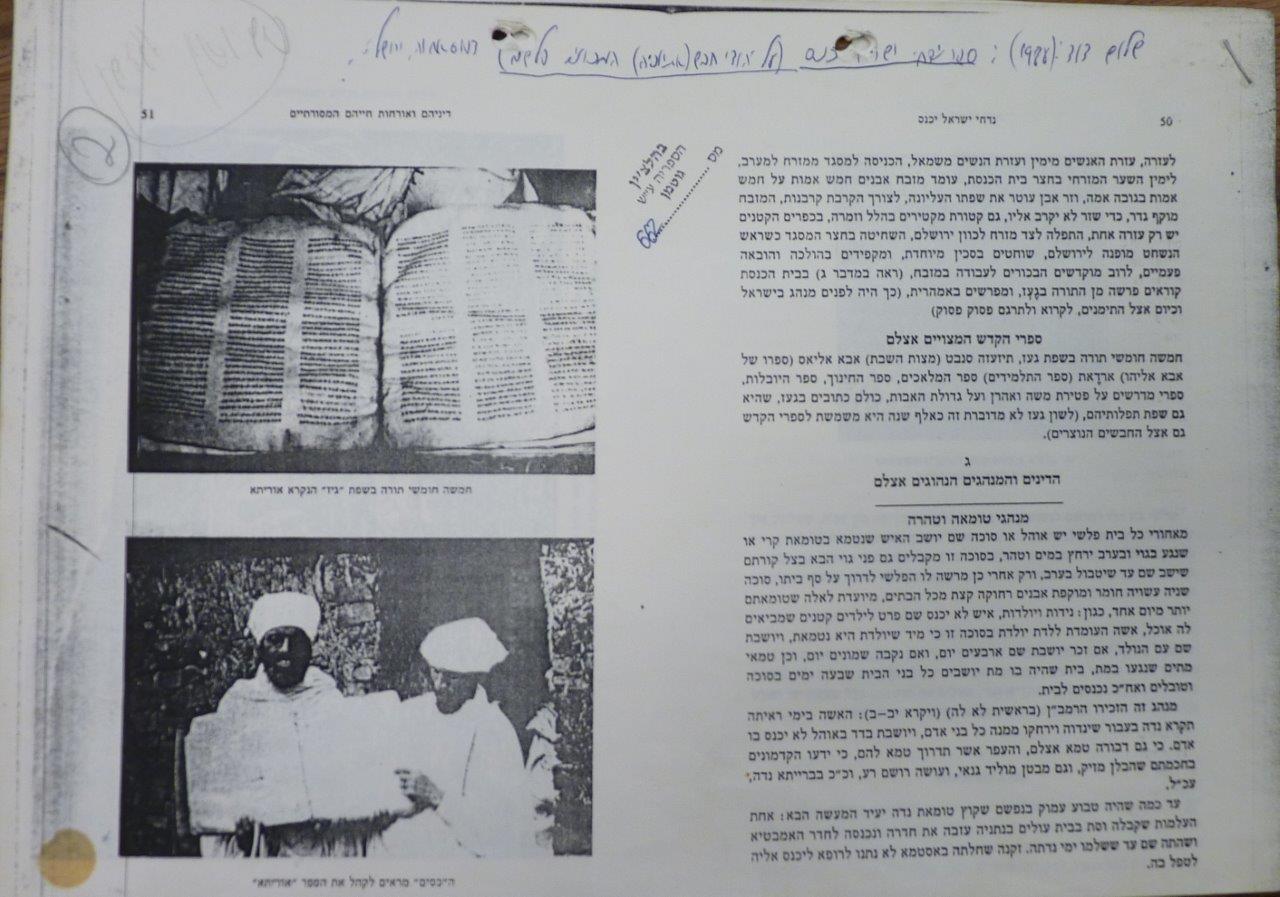 שלום דוד (1987):
50
נדחי ישראל יכנס
לעזרה, עזרת האנשים מימין ועזרת הנשים משמאל, הכניסה למסגד ממזרח למערב,
לימין השער המזרחי בחצר בית הכנסת, עומד מזבח אבנים חמש אמות על חמש
אמות בגובה אמה, וזר אבן עוטר את שפתו העליונה, לצורך הקרבת קרבנות, המזבח
מוקף גדר, כדי שזר לא יקרב אליו, גם קטורת מקטירים בהלל וזמרה, בכפרים הקטנים
יש רק עזרה אחת, התפלה לצד מזרח לכוון ירושלים, השחיטה בחצר המסגד כשראש
הנשחט מופנה לירושלים, שוחטים בסכין מיוחדת, ומקפידים בהולכה והובאה
פעמיים, לרוב מוקדשים הבכורים לעבודה במזבח, (ראה במדבר ג) בבית הכנסת
קוראים פרשה מן התורה בגעז, ומפרשים באמהרית, (כך היה לפנים מנהג בישראל
וכיום אצל התימנים, לקרוא ולתרגם פסוק פסוק)
ספרי הקדש המצויים אצלם
חמשה חומשי תורה בשפת געז, תיזעזה סנבט (מצות השבת) אבא אליאס (ספרו של
אבא אליהו) ארדאת (ספר התלמידים) ספר המלאכים, ספר החינוך, ספר היובלות,
ספרי מדרשים על פטירת משה ואהרן ועל גדולת האבות, כולם כתובים בגעז, שהיא
גם שפת תפלותיהם, (לשון געז לא מדוברת זה כאלף שנה היא משמשת לספרי הקדש
גם אצל החבשים הנוצרים).
ג
הדינים והמנהגים הנהוגים אצלם
מנהגי טומאה וטהרה
מאחורי כל בית פלשי יש אוהל או סוכה שם יושב האיש שנטמא בטומאת קרי או
שנגע בגוי ובערב ירחץ במים וטהר, בסוכה זו מקבלים גם פני גוי הבא בצל קורתם
שישב שם עד שיטבול בערב, ורק אחרי כן מרשה לו הפלשי לדרוך על סף ביתו, סוכה
שניה עשויה חומר ומוקפת אבנים רחוקה קצת מכל הבתים, מיועדת לאלה שטומאתם
יותר מיום אחד, כגון: נידות ויולדות, איש לא יכנס שם פרט לילדים קטנים שמביאים
לה אוכל, אשה העומדת ללדת יולדת בסוכה זו כי מיד שיולדת היא נטמאת, ויושבת
שם עם הנולד, אם זכר יושבת שם ארבעים יום, ואם נקבה שמונים יום, וכן טמאי
מתים שנגעו במת, בית שהיה בו מת יושבים כל בני הבית שבעה ימים בסוכה
וטובלים ואח"כ נכנסים לבית.
מנהג זה הזכירו הרמב"ן (בראשית לא לה) (ויקרא יב–ב): האשה בימי ראיתה
תקרא נדה בעבור שינדוה וירחקו ממנה כל בני אדם, ויושבת בדד באוהל לא יכנס בו
אדם. כי גם דבורה טמא אצלם, והעפר אשר תדרוך טמא להם, כי ידעו הקדמונים
בחכמתם שהבלן מזיק, וגם מבטן מוליד גנאי, ועושה רושם רע, וכ"כ בברייתא נדה,
עכ"ל.
עד כמה שהיה טבוע עמוק בנפשם שקוץ טומאת נדה יעיד המעשה הבא: אחת
העלמות שקבלה וסת בבית עולים בנתניה עזבה את חדרה ונכנסה לחדר האמבטיא
ושהתה שם עד ששלמו ימי נדתה. זקנה שחלתה באסטמא לא נתנו לרופא ליכנס אליה
לטפל בה.
מס
הספריה ע"ש
גוטמן
662
דיניהם ואורחות חייהם המסורתיים
51
2
חמשה חומשי תורה בשפת "גיז" הנקרא אוריתא
ה"כסים" מראים לקהל את הספר "אוריתא"